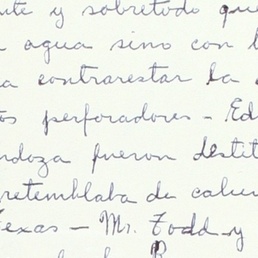 nte y sobretodo que
agua sino con l
a contrarestar la
os perforadores - Ed
ndoza fueron destit
retemblaba de calien
Texas - Mr. Todd - y